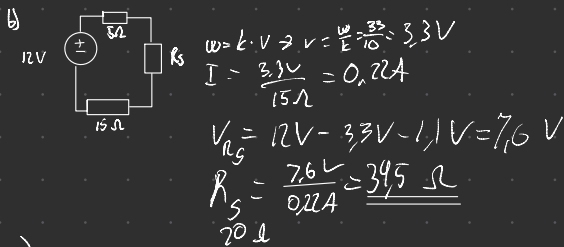 b)
5Ω
12V
Rs
15Ω
ω = k · V → v = ω/k = 33/10 = 3,3V
I = 3,3V/15Ω = 0,22A
V_Rs = 12V - 3,3V - 1,1V = 7,6 V
R_s = 7,6V/0,22A = 34,5 Ω
20 Ω